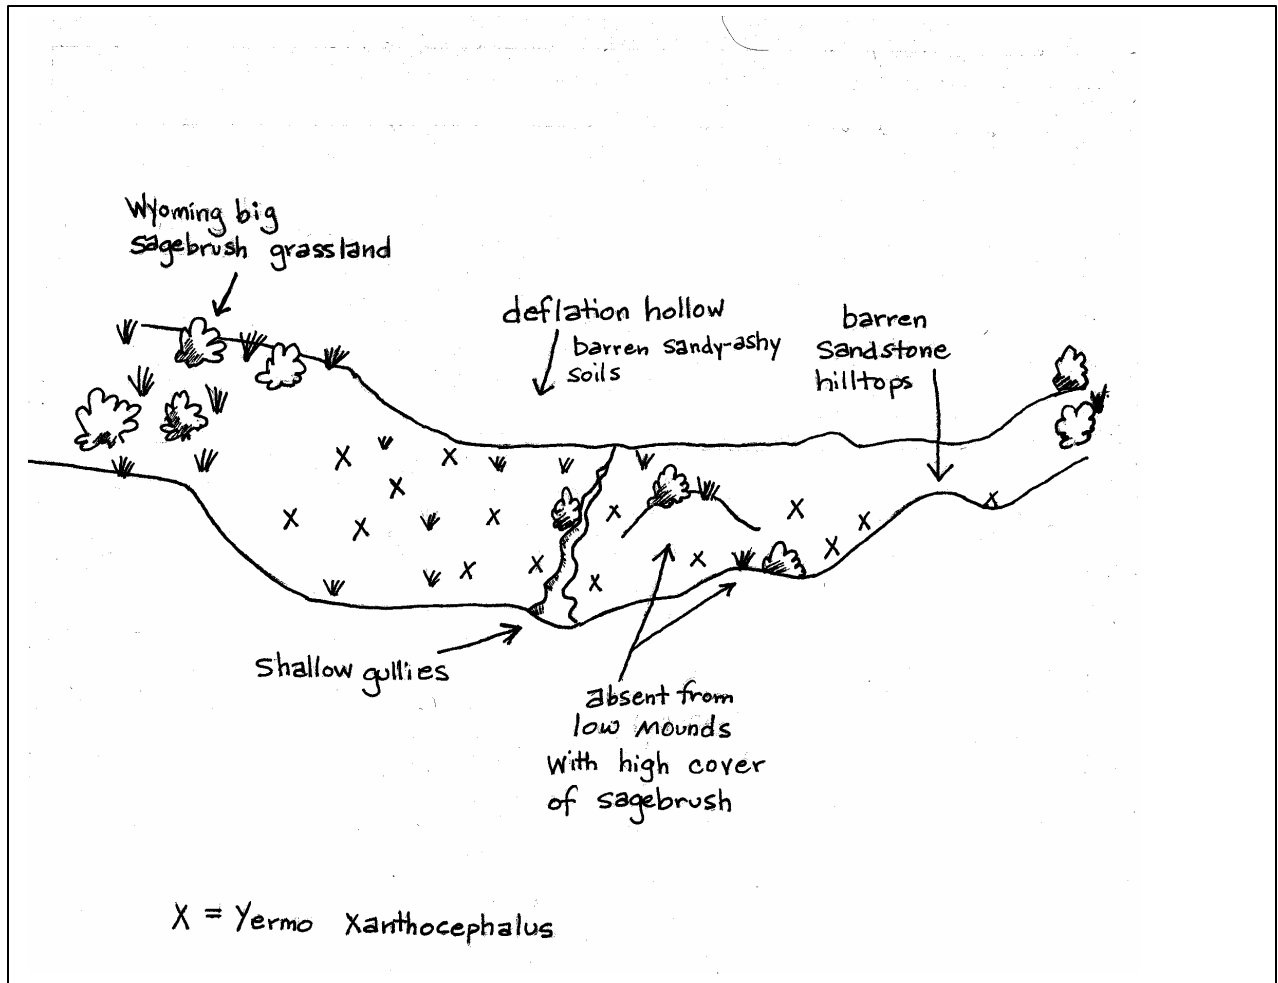 Wyoming big
sagebrush grassland
deflation hollow
barren sandy-ashy
soils
barren
Sandstone
hilltops
Shallow gullies
absent from
low mounds
with high cover
of sagebrush
X = Yermo Xanthocephalus